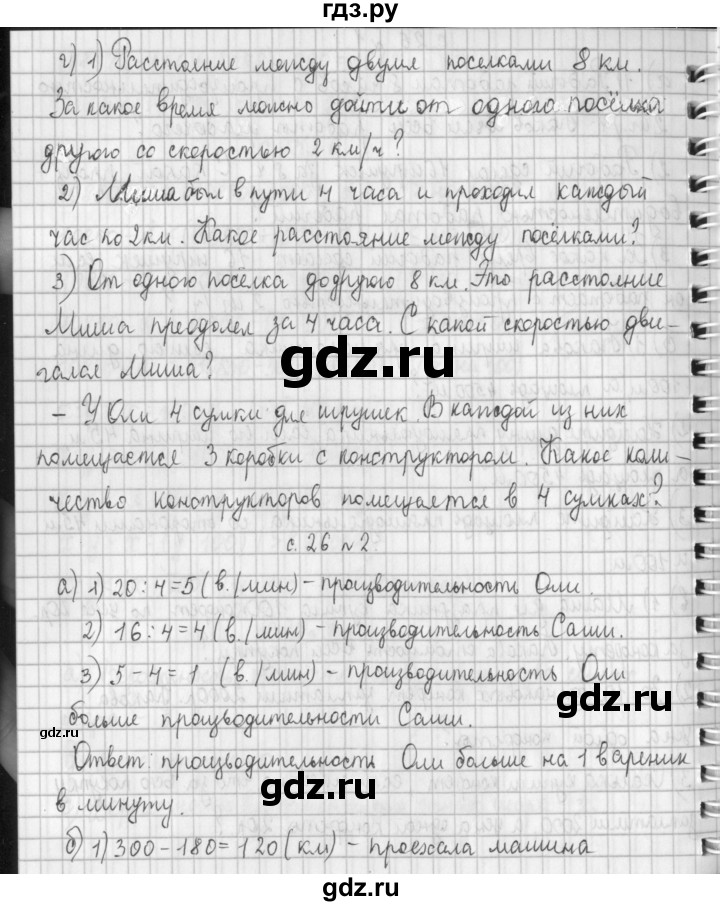 гдз.ру
г) 1) Расстояние между двумя поселками 8 км.
За какое время можно дойти от одного посёлка
другого со скоростью 2 км/ч?
2) Миша был в пути 4 часа и проходил каждый
час по 2 км. Какое расстояние между посёлками?
3) От одного посёлка до другого 8 км. Это расстояние
Миша преодолел за 4 часа. С какой скоростью дви-
gdz.ru
гался Миша?
- У Оли 4 сумки для игрушек. В каждой из них
помещается 3 коробки с конструктором. Какое коли-
чество конструкторов помещается в 4 сумках?
с. 26 №2
а) 1) 20:4=5 (в./мин) - производительность Оли.
2) 16:4=4 (в./мин) - производительность Саши.
3) 5-4=1 (в./мин) - производительность Оли
больше производительности Саши.
gdz.ru
Ответ: производительность Оли больше на 1 вареник
gdz.ru
в минуту.
б) 1) 300-180=120 (км) - проехала машина
gdz.ru